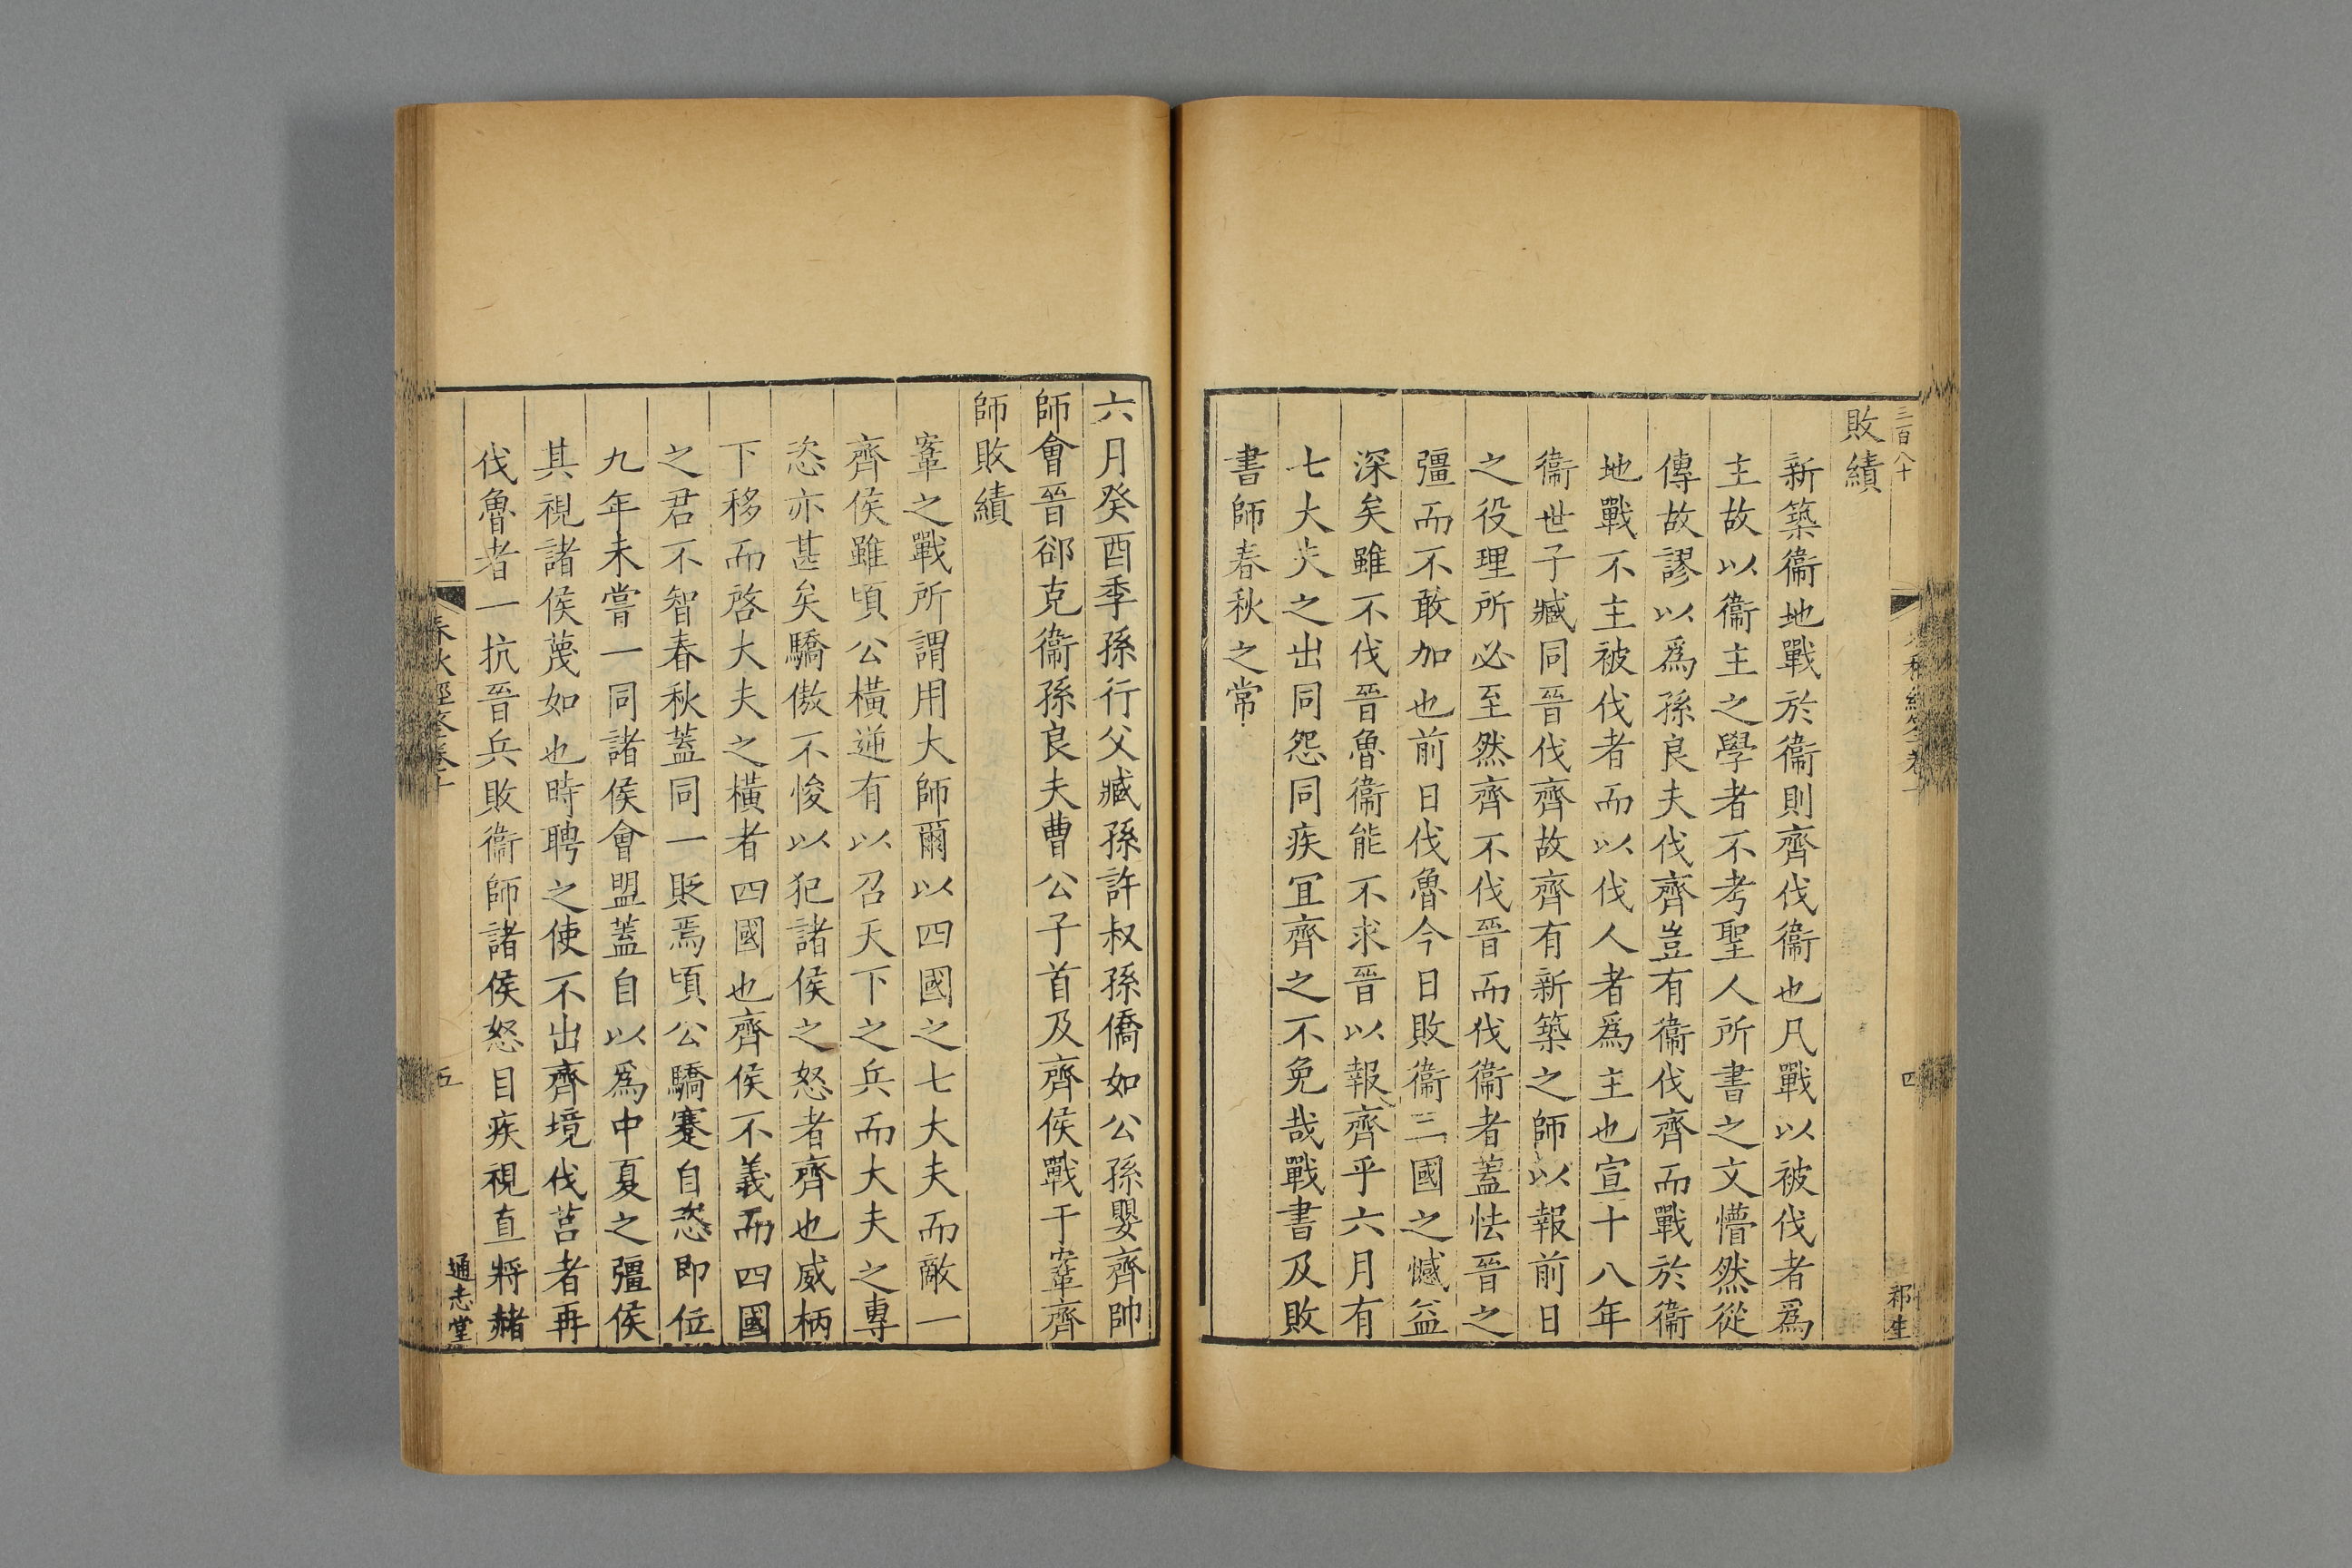 三百八十
祁生
敗績
新築衞地戰於衞則齊伐衞也凡戰以被伐者爲
主故以衞主之學者不考聖人所書之文懵然從
傳故謬以爲孫良夫伐齊豈有衞伐齊而戰於衞
地戰不主被伐者而以伐人者爲主也宣十八年
衞世子臧同晉伐齊故齊有新築之師以報前日
之役理所必至然齊不伐晉而伐衞者蓋怯晉之
彊而不敢加也前日伐魯今日敗衞三國之憾益
深矣雖不伐晉魯衞能不求晉以報齊乎六月有
七大夫之出同怨同疾冝齊之不免哉戰書及敗
書師春秋之常
六月癸酉季孫行父臧孫許叔孫僑如公孫嬰齊帥
師會晉郤克衞孫良夫曹公子首及齊侯戰于鞌齊
師敗績
鞌之戰所謂用大師爾以四國之七大夫而敵一
齊侯雖頃公橫逆有以召天下之兵而大夫之專
恣亦甚矣驕傲不悛以犯諸侯之怒者齊也威柄
下移而啓大夫之橫者四國也齊侯不義而四國
之君不智春秋蓋同一貶焉頃公驕蹇自恣即位
九年未嘗一同諸侯會盟蓋自以爲中夏之彊侯
其視諸侯蔑如也時聘之使不出齊境伐莒者再
伐魯者一抗晉兵敗衞師諸侯怒目疾視直將赭
五
通志堂